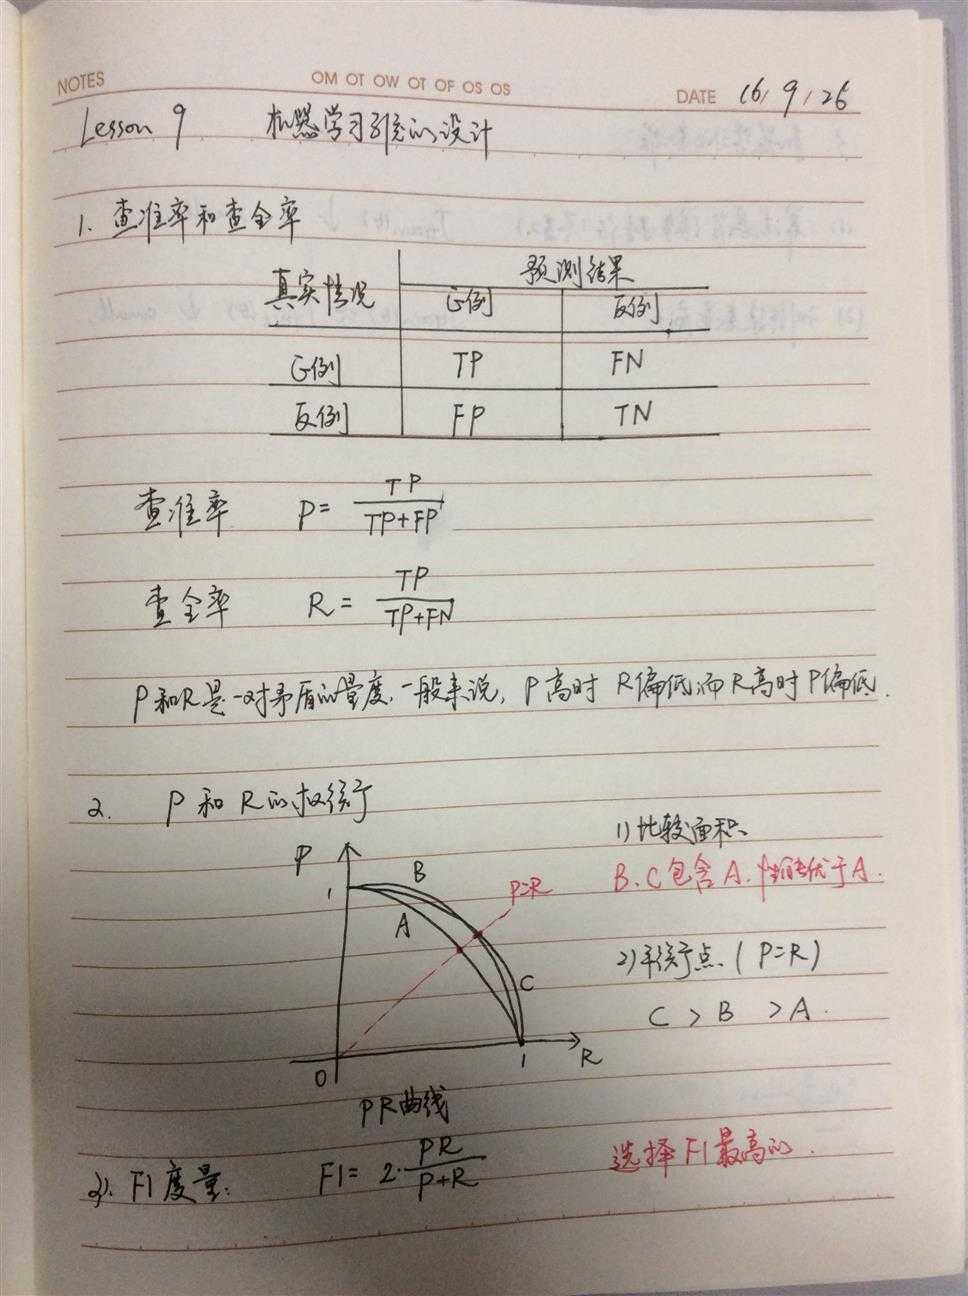 NOTES OM OT OW OT OF OS OS DATE 16/9/26
Lesson 9 机器学习系统的设计
1. 查准率和查全率
真实情况 预测结果
正例 反例
正例 TP FN
反例 FP TN
查准率 P = TP/(TP+FP)
查全率 R = TP/(TP+FN)
P和R是一对矛盾的量度,一般来说,P高时 R偏低,而R高时P偏低.
2. P 和 R的权衡
1) 比较面积
B、C包含A.性能优于A.
2) 平衡点 (P=R)
C > B > A.
P
1
B
A
P=R
C
0
1
R
PR曲线
3). F1度量: F1= 2·PR/(P+R) 选择F1最高的.